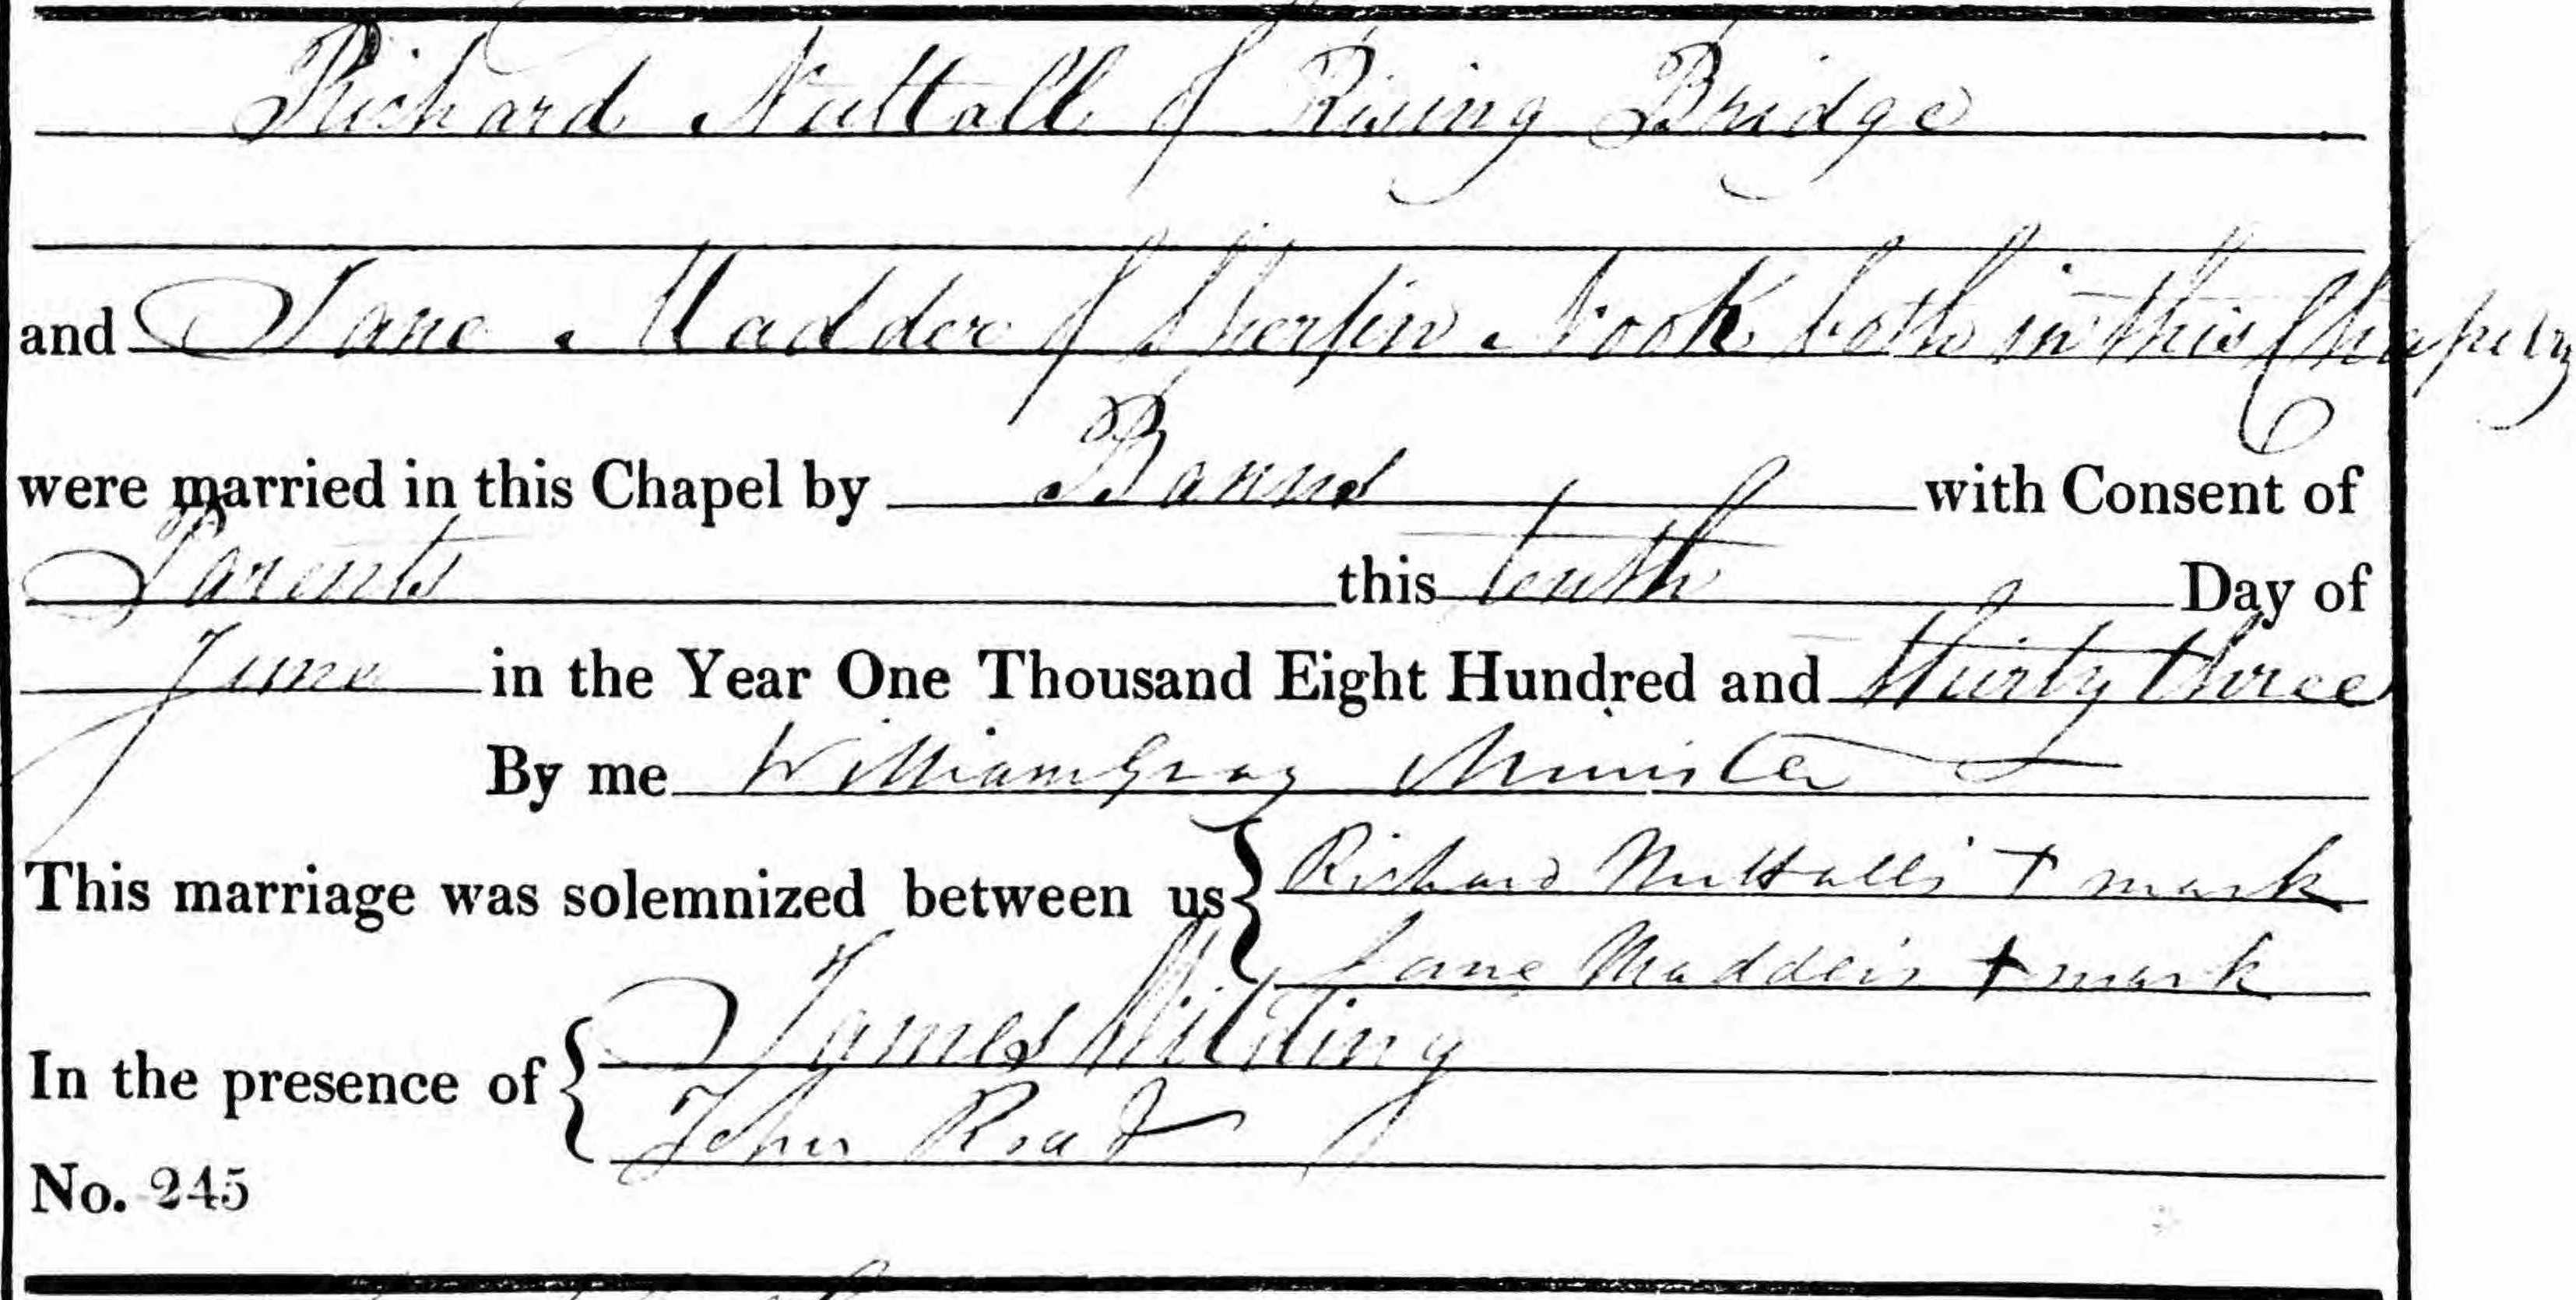 Richard Nuttall of Rising Bridge
and Jane Madder of Sherfin Nook both in this Chapelry
were married in this Chapel by Banns with Consent of
Parents this tenth Day of
June in the Year One Thousand Eight Hundred and thirty three
By me William Gray Minister
This marriage was solemnized between us { Richard Nuttall's + mark
Jane Madder's + mark
In the presence of { James Wilding
John
No. 245